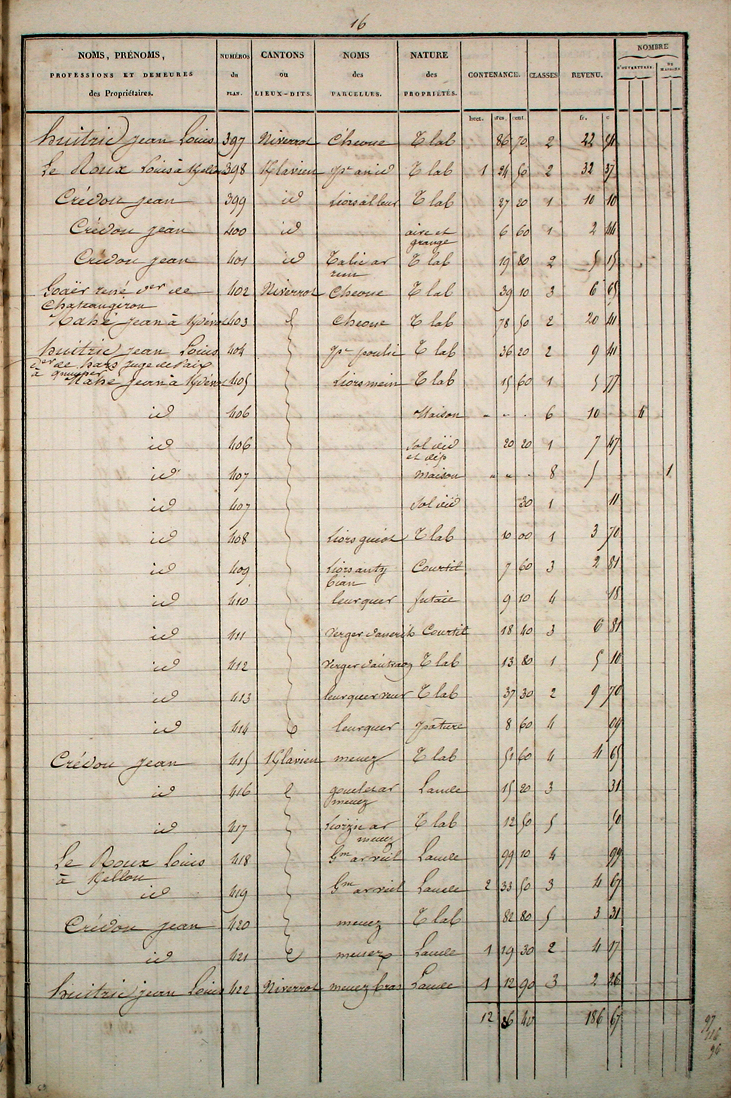 16
NOMS, PRÉNOMS, PROFESSIONS ET DEMEURES des Propriétaires. NUMÉROS du PLAN. CANTONS ou LIEUX-DITS. NOMS des PARCELLES. NATURE des PROPRIÉTÉS. CONTENANCE. CLASSES. REVENU. NOMBRE D'OUVERTURES. DE MAISONS
hect. ares. cent. fr. c
huitric jean Louis 397 Niverrot Cheone T lab 86 70 2 22 54
Le Roux Louis à Kellou 398 Klavien 1 24 50 2 32 37
Crédou jean 399 id T lab 27 20 1 10 10
Crédou jean 400 id aire et grange 6 60 1 2 44
Crédou jean 401 id Talie ar T lab 19 80 2 5 15
René Der de Chateaugiron 402 Niverrot Cheone T lab 39 10 3 6 65
Mahé jean à 403 Cheone T lab 78 50 2 20 41
huitric jean Louis 404 T lab 36 20 2 9 41
der de juge de Paix à quimper
Mahé jean à 405 Liorsmein T lab 15 60 1 5 77
id 406 Maison 6 10 6
id 406 Sol did et dép 20 20 1 7 47
id 407 maison 8 5 1
id 407 Sol did 30 1 11
id 408 Liors guiot T lab 10 00 1 3 70
id 409 Liors anty bian Courtil 7 60 3 2 81
id 410 leurguer futaie 9 10 4 18
id 411 Courtil 18 40 3 6 81
id 412 T lab 13 80 1 5 10
id 413 leurguer veur T lab 37 30 2 9 70
id 414 leurguer pature 8 60 4 09
Crédou jean 415 Klavien menez T lab 51 60 4 4 65
id 416 gouelet ar menez Lande 15 20 3 31
id 417 ar menez T lab 12 50 5 50
Le Roux Louis à Kellou 418 Gm ar vuil Lande 99 10 4 99
id 419 Gm ar vuil Lande 2 33 50 3 4 67
Crédou jean 420 menez T lab 82 80 5 3 31
id 421 menez Lande 1 19 30 2 4 17
huitric jean Louis 422 Niverrot menez bras Lande 1 12 90 3 2 26
12 26 40 186 67
97
116
96